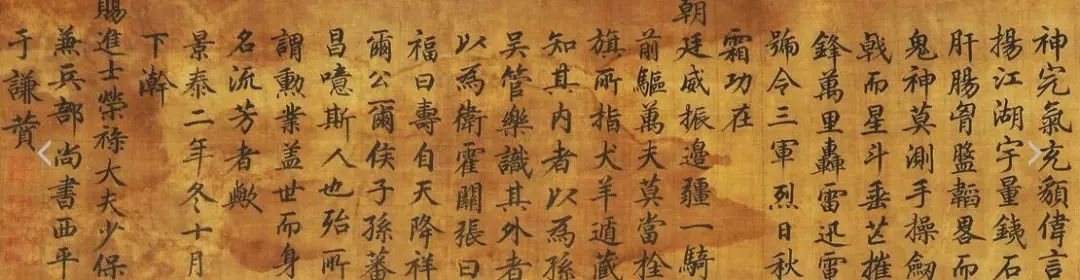 神完氣充貌偉言
揚江湖宇量銕石
肝腸胷盤韜畧而
鬼神莫測手操劔
戟而星斗垂芒摧
鋒萬里轟雷迅雷
號令三軍烈日秋
霜功在
朝廷威振邊疆一騎
前驅萬夫莫當拴
旗所指犬羊遁藏
知其内者以為孫
吳管樂識其外者
以為衛霍關張曰
福曰壽自天降祥
爾公爾侯子孫蕃
昌噫斯人也殆所
謂勲業盖世而身
名流芳者歟
景泰二年冬十月
下澣
賜進士榮祿大夫少保
兼兵部尚書西平
于謙賛